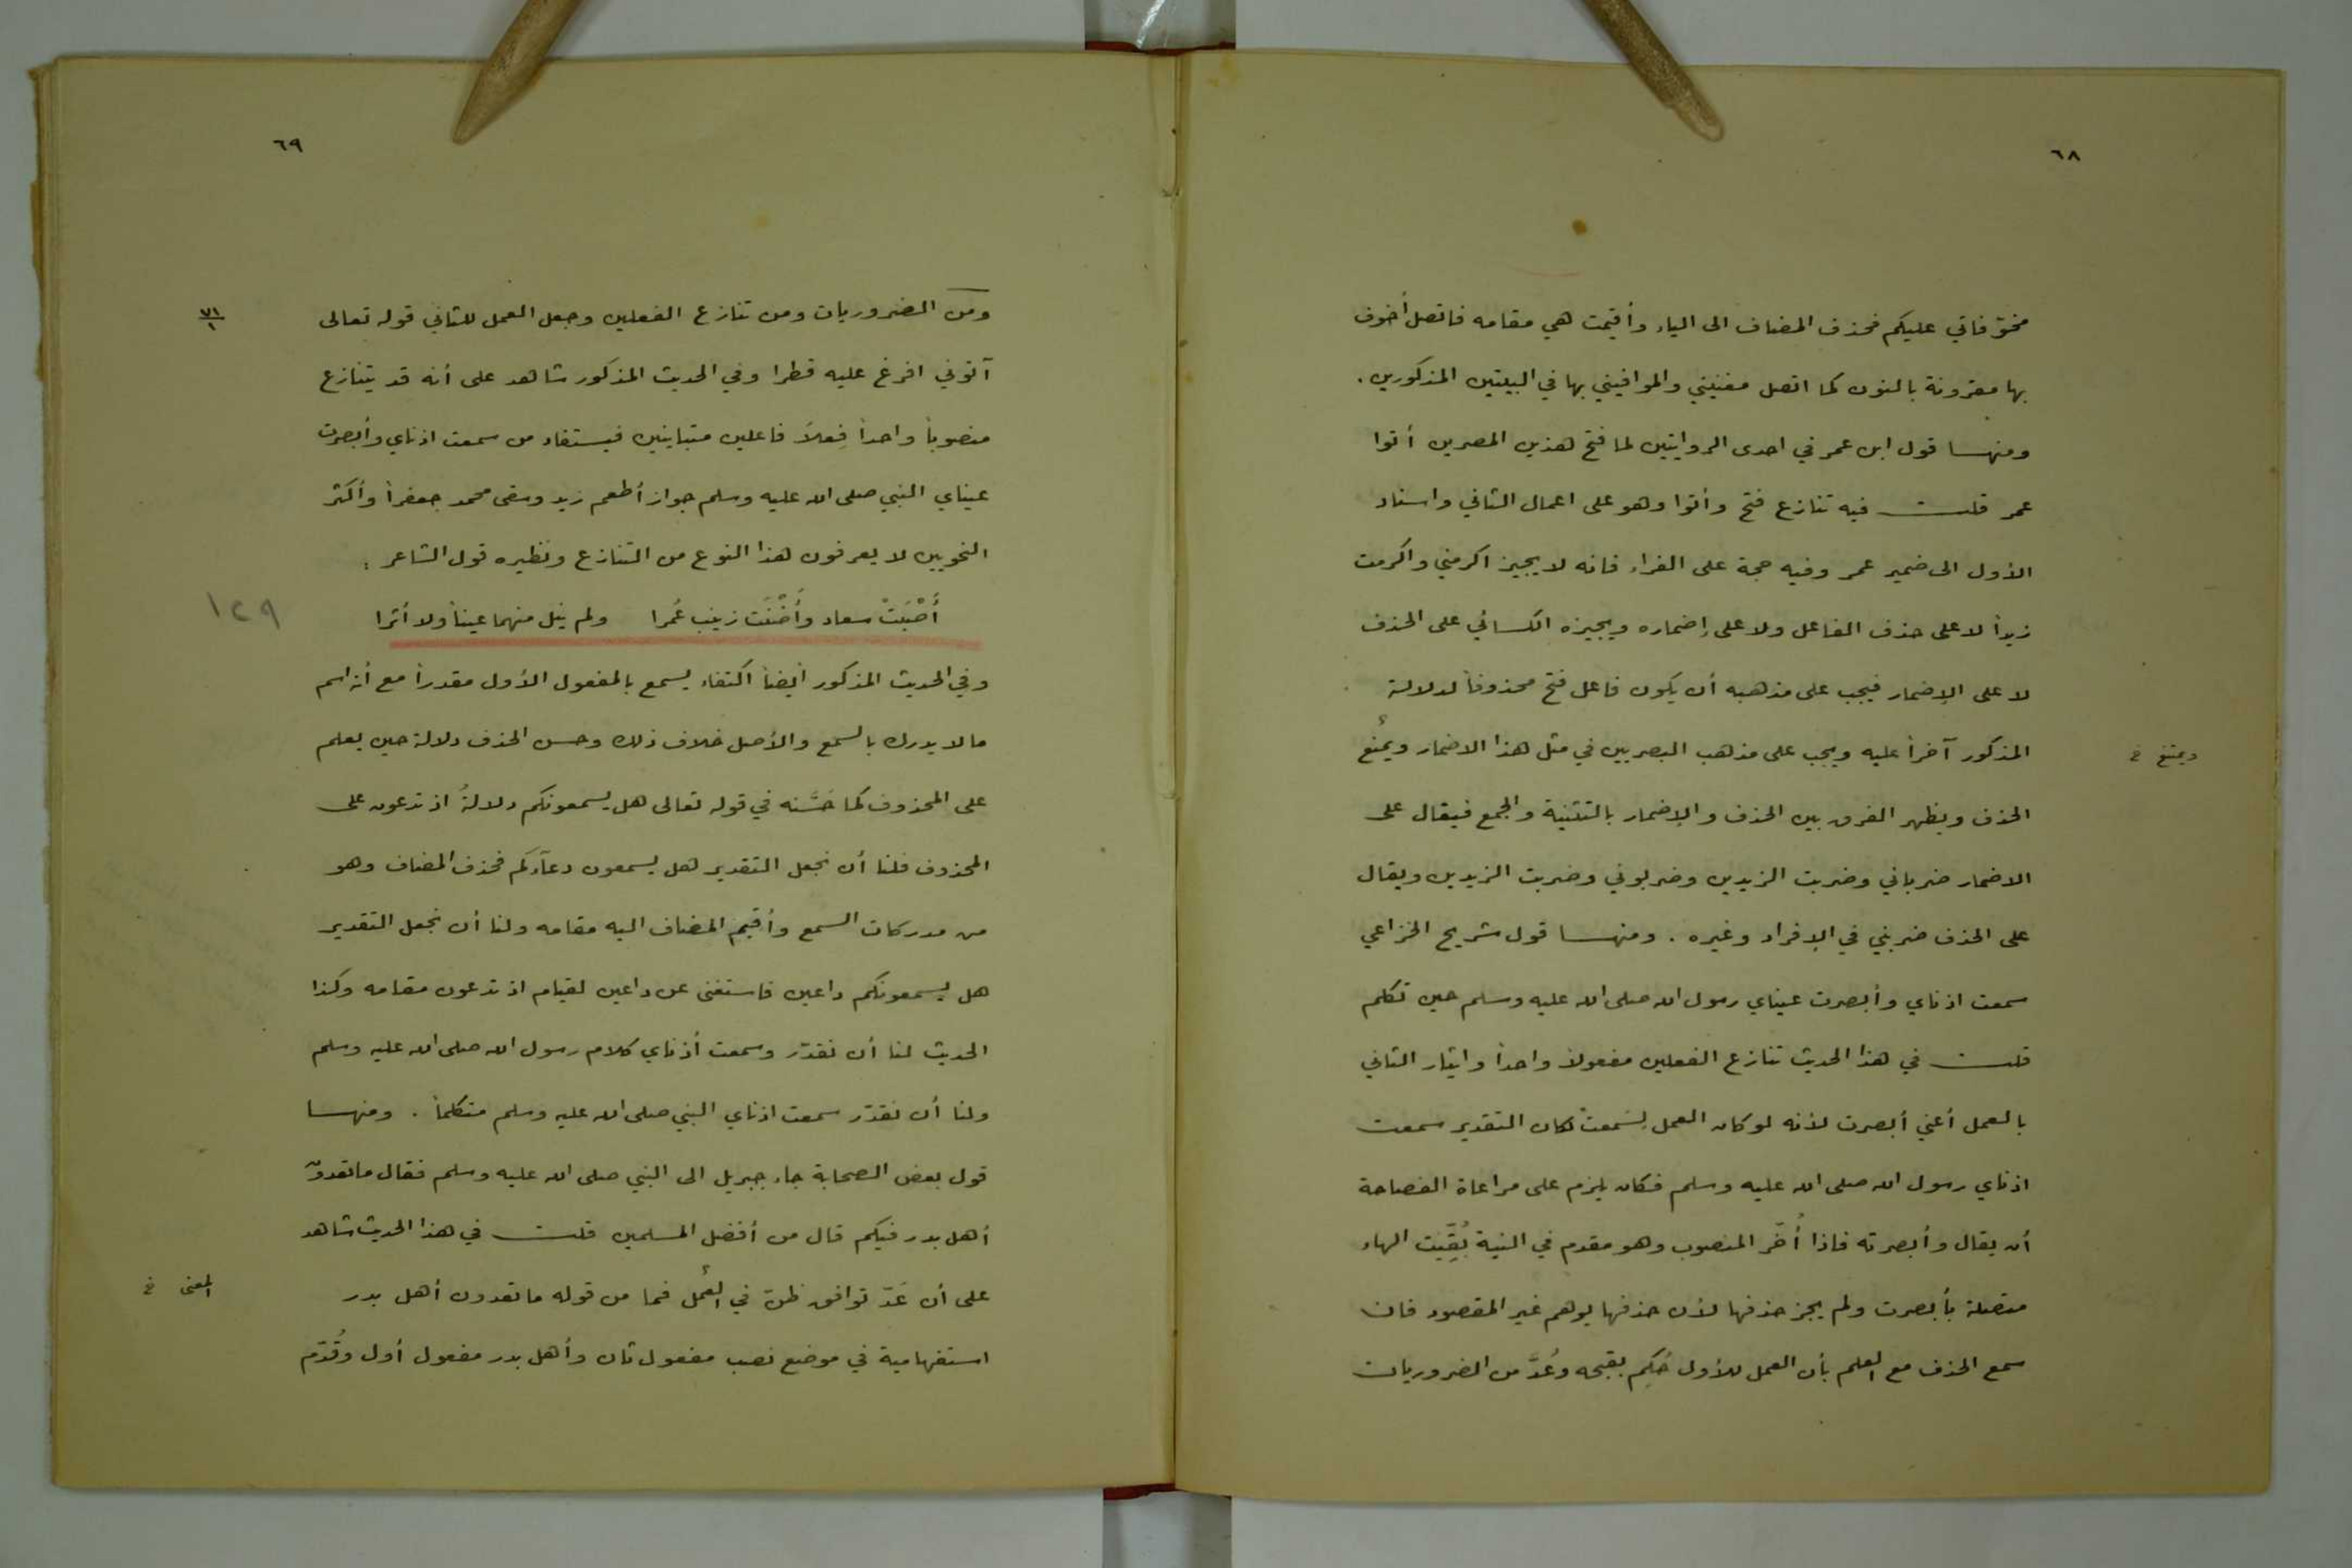 ٦٨
مخوّفاتي عليكم فحذف المضاف الى الياء وأقيمت هي مقامه فاتصل أخوف
بها مقرونة بالنون كما اتصل مغنيني والموافيني بها في البيتين المذكورين .
ومنهــا قول ابن عمر في احدى الروايتين لما فتح هذين المصرين أتوا
عمر قلــت فيه تنازع فتح وأتوا وهو على اعمال الثاني واسناد
الأول الى ضمير عمر وفيه حجة على الفراء فانه لا يجيز اكرمني واكرمت
زيداً لا على حذف الفاعل ولا على إضماره ويجيزه الكسائي على الحذف
لا على الإضمار فيجب على مذهبه أن يكون فاعل فتح محذوفاً لدلالة
المذكور آخراً عليه ويجب على مذهب البصريين في مثل هذا الاضمار ويمنُع
ويمتنع خ
الحذف ويظهر الفرق بين الحذف والإضمار بالتثنية والجمع فيقال على
الاضمار ضرباني وضربت الزيدين وضربوني وضربت الزيدين ويقال
على الحذف ضربني في الإفراد وغيره . ومنهــا قول شريح الخزاعي
سمعت اذناي وأبصرت عيناي رسول الله صلى الله عليه وسلم حين تكلم
قلــت في هذا الحديث تنازع الفعلين مفعولاً واحداً وايثار الثاني
بالعمل أعني أبصرت لأنه لو كان العمل لِسَمعتْ لكان التقدير سمعت
اذناي رسول الله صلى الله عليه وسلم فكان يلزم على مراعاة الفصاحة
أن يقال وأبصرته فاذا أُخّر المنصوب وهو مقدم في النية بُقِّيَت الهاء
متصلة بأبصرت ولم يجز حذفها لأن حذفها يوهم غير المقصود فان
سمع الحذف مع العلم بأن العمل للأول حُكِم بقبحه وعُدَّ من الضروريات
٦٩
ومن الضروريات ومن تنازع الفعلين وجعل العمل للثاني قوله تعالى
٧١/١
آتوني افرغ عليه قطرا وفي الحديث المذكور شاهد على أنه قد يتنازع
منصوباً واحداً فِعلاَ فاعلين متباينين فيستفاد من سمعت اذناي وأبصرت
عيناي النبي صلى الله عليه وسلم جواز أطعم زيد وسقى محمد جعفراً وأكثر
النحويين لا يعرفون هذا النوع من التنازع ونظيره قول الشاعر :
أَصْبَتْ سعاد وأَضْنَت زينب عُمرا ولم ينل منهما عيناً ولا أثرا
١٢٩
وفي الحديث المذكور أيضاً اكتفاء يسمع بالمفعول الأول مقدراً مع أنه اسم
ما لا يدرك بالسمع والأصل خلاف ذلك وحسن الحذف دلالة حين يعلم
على المحذوف كما حَسَّنه في قوله تعالى هل يسمعونكم دلالةُ اذ تدعون على
المحذوف فلنا أن نجعل التقدير هل يسمعون دعآءكم فحذف المضاف وهو
من مدركات السمع وأُقيم المضاف اليه مقامه ولنا أن نجعل التقدير
هل يسمعونكم داعين فاستغنى عن داعين لقيام اذ تدعون مقامه وكذا
الحديث لنا أن نقدّر وسمعت أذناي كلام رسول الله صلى الله عليه وسلم
ولنا أن نقدّر سمعت اذناي النبي صلى الله عليه وسلم متكلماً . ومنهــا
قول بعض الصحابة جاء جبريل الى النبي صلى الله عليه وسلم فقال ما تعدون
أهل بدر فيكم قال من أفضل المسلمين قلــت في هذا الحديث شاهد
على أن عَدّ توافق ظن في العمل فما من قوله ما تعدون أهل بدر
المعنى خ
استفهامية في موضع نصب مفعول ثان وأهل بدر مفعول أول وقُدّم